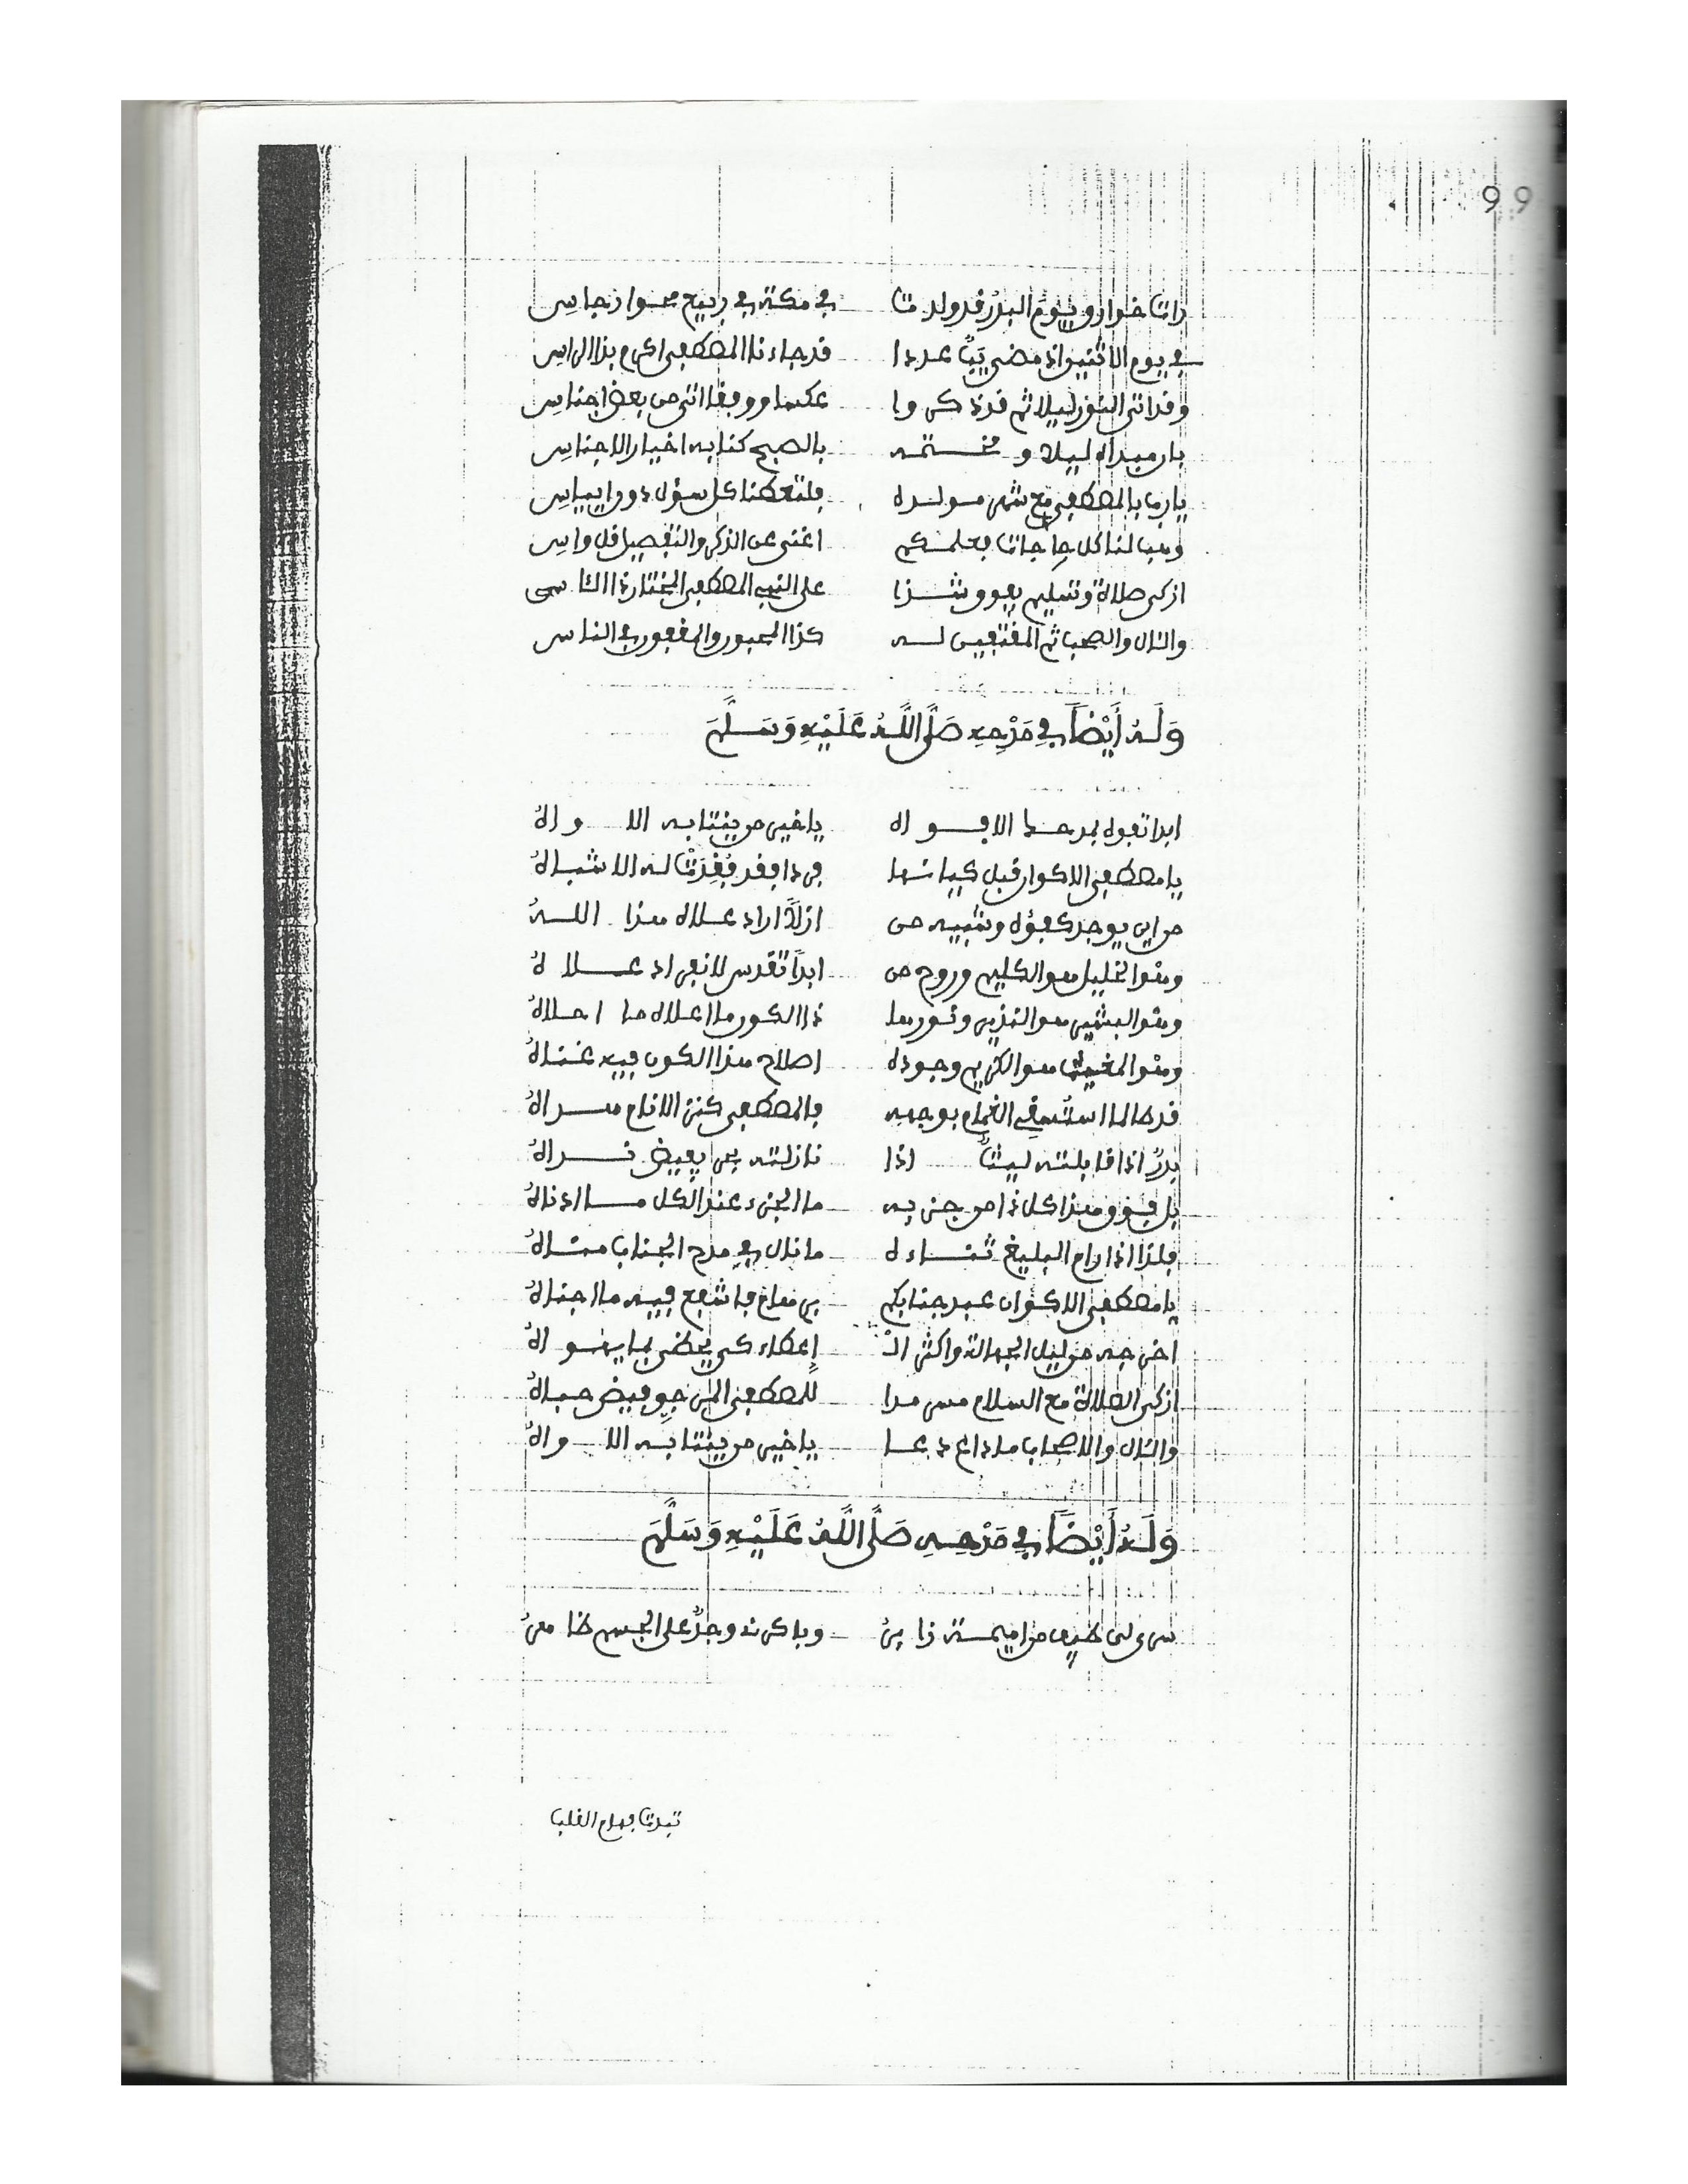 99
رات خوارق يوم البدر قد ولدت في مكة في ربيع محو ارجاس
في يوم الاثنين اذ مضى يب عددا قد جاءنا المصطفى اكرم بذا الراس
وقد اتى النور ليلا ثم قد ذكروا عكسا ووفقا اتى من بعض اجناس
بان مبداه ليلا ومختمه بالصبح كنا به اخيار الاجناس
يا رب بالمصطفى مع شهر مولده فلتعطنا كل سؤل دون ايياس
وهب لنا كل حاجات بعلمكم اغنى عن الذكر والتفصيل قل واس
ازكى صلاة وتسليم يفوق شذا على النبي المصطفى المختار ذا الكاسى
والئال والصحب ثم المقتفين له كذا المحبور والمغفور في الناس
وَلَهُ أَيْضاً فِي مَدْحِهِ صَلَّى اللَّهُ عَلَيْهِ وَسَلَّمَ
ابدا تفوه بمدحك الافواه يا خير من ينتابه الاواه
يا مصطفى الاكوان قبل كيانها فردا فقد فُقِدَتْ له الاشباه
من اين يوجد كفؤه وشبيه من ازلاً اراد علاه هذا اللهُ
وهو الخليل هو الكليم وروح من ابداً تقدس لانفراد علاهُ
وهو البشير هو النذير ونور ها ذا الكون ما اعلاه ما احلاهُ
وهو المغيث هو الكريم وجوده اصلاح هذا الكون فيه غناهُ
قد طالما استُسقي الغمام بوجهه فالمصطفى كنز الانام سراهُ
بدرٌ اذا قابلته ليثٌ اذا نازلته بحر يفيض نداهُ
بل فوق هذا كل ذا من جزءه ما الجزء عند الكل ما ادناهُ
فلذا اذا رام البليغ ثناءه ما نال في مدح الجناب مناهُ
يا مصطفى الاكوان عبد جنابكم برهام فاشفع فيه ما اجناهُ
اخرجه من ليل الجهالة واكثر الْ إعطاء كى يحظى بما يهواهُ
ازكى الصلاة مع السلام مسرمدا للمصطفى المرجو فيض حباهُ
والئال والاصحاب ما داع دعا يا خير من ينتابه الاواهُ
وَلَهُ أَيْضاً فِي مَدْحِهِ صَلَّى اللَّهُ عَلَيْهِ وَسَلَّمَ
سرى لى طيف من اميمة زائرُ وباكرنه وجدٌ على الجسم ظاهرُ
تبدت فهام القلب